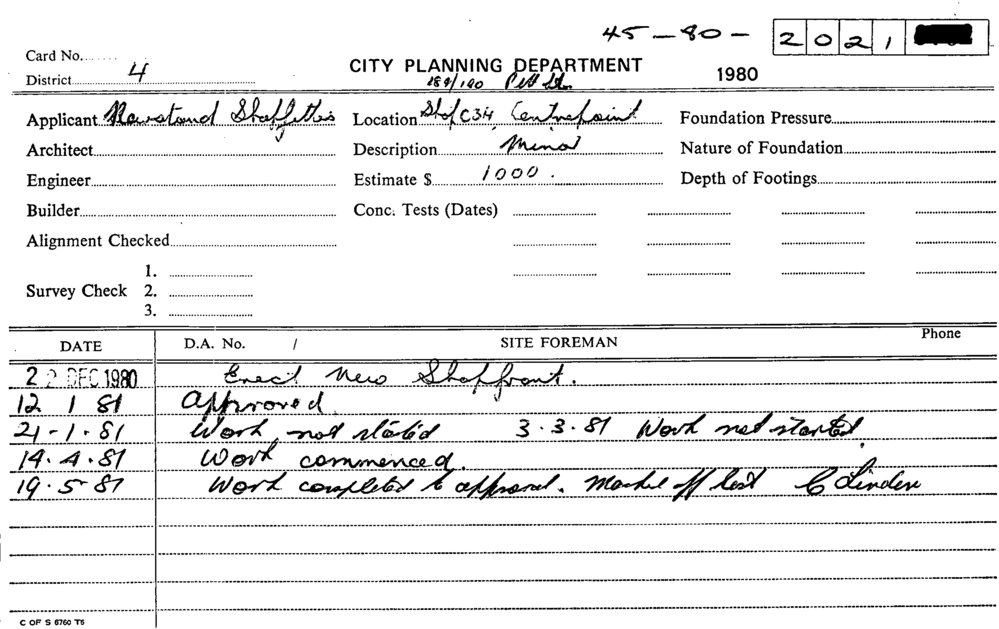 45-80- 2021
Card No.
District 4
CITY PLANNING DEPARTMENT 1980
184/190 Pitt St.
Applicant Newstand Shopfitters Location Shop C34, Centrepoint Foundation Pressure
Architect Description Minor Nature of Foundation
Engineer Estimate $ 1000. Depth of Footings
Builder Conc. Tests (Dates)
Alignment Checked
1.
Survey Check 2.
3.
DATE D.A. No. / SITE FOREMAN Phone
22 DEC 1980 Erect New Shopfront.
12 1 81 Approved.
21-1-81 Work not started 3.3.81 Work not started.
14.4.81 Work commenced.
19.5.81 Work completed to approval. Marked off list C Linden
C OF S 6760 T5